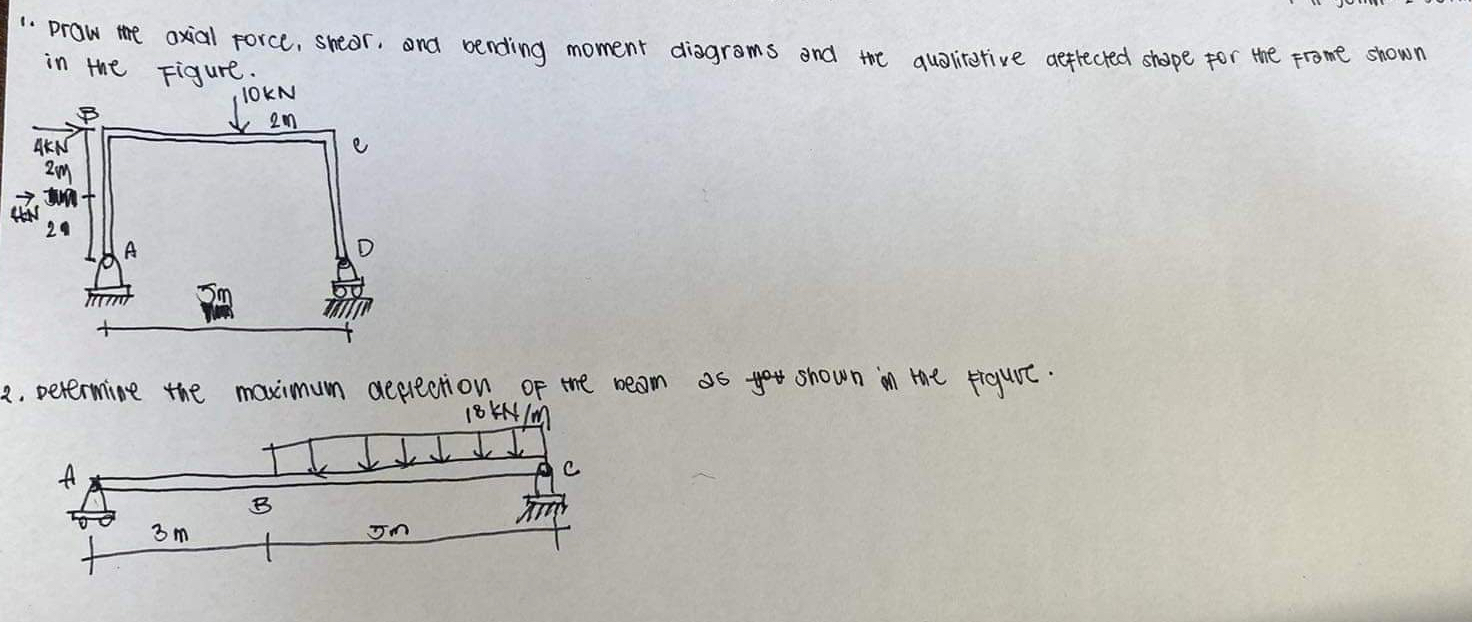 1. Draw the axial Force, shear, and bending moment diagrams and the qualitative deflected shape for the Frame shown
in the Figure.
10KN
B
2m
4KN
C
2m
4KN
2m
A
D
5m
2. Determine the maximum deflection OF the beam as shown in the Figure.
18 KN/m
A
C
B
3m
5m